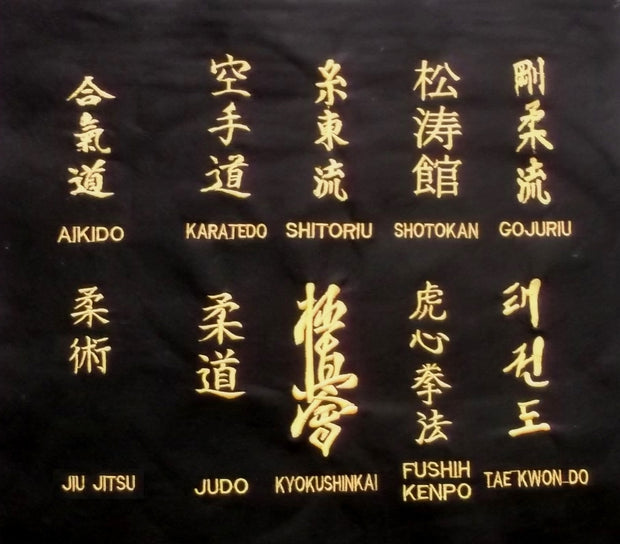 合氣道
AIKIDO
空手道
KARATEDO
糸東流
SHITORIU
松涛館
SHOTOKAN
剛柔流
GOJURIU
柔術
JIU JITSU
柔道
JUDO
極真會
KYOKUSHINKAI
虎心拳法
FUSHIH
KENPO
태권도
TAE KWON DO